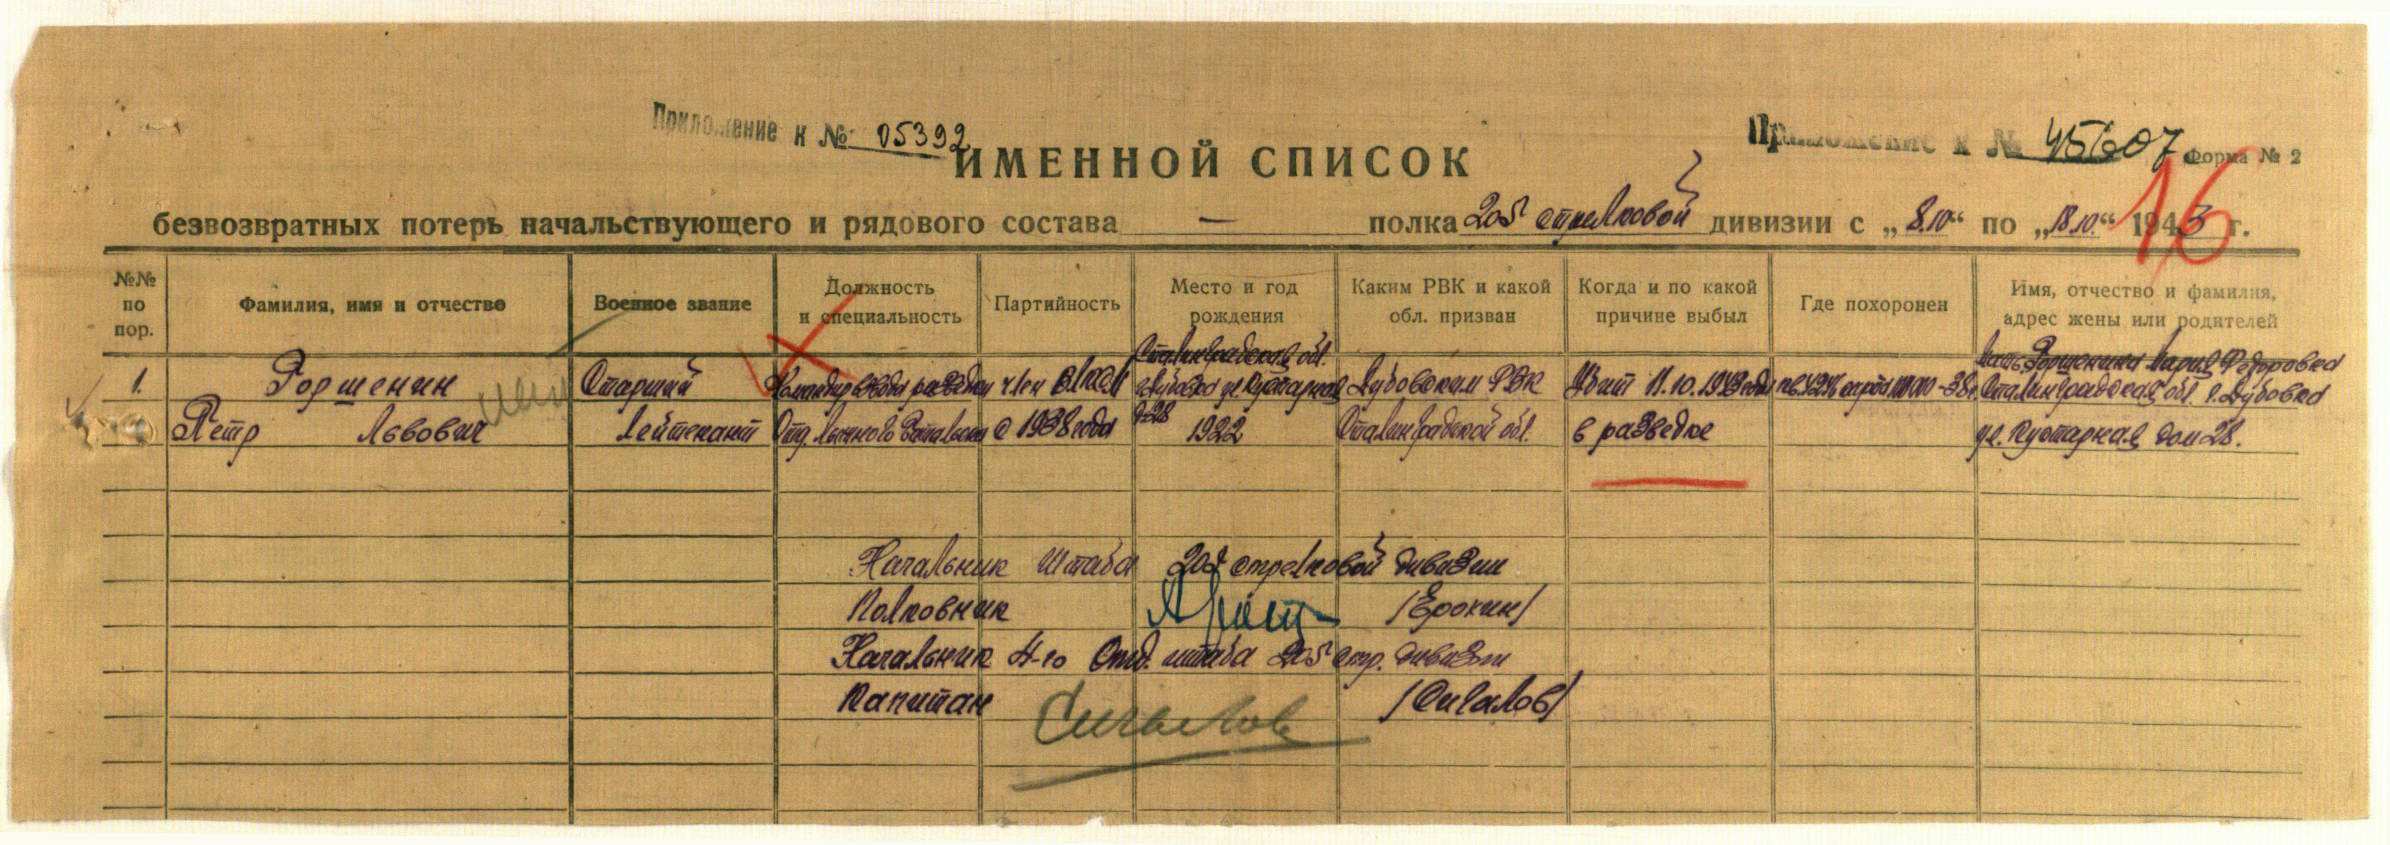 Приложение к № 05392
Приложение к № 45607
Форма № 2
ИМЕННОЙ СПИСОК
16
безвозвратных потерь начальствующего и рядового состава — полка 205 стрелковой дивизии с „8.10“ по „18.10.“ 1943 г.
№№ по пор.
Фамилия, имя и отчество
Военное звание
Должность и специальность
Партийность
Место и год рождения
Каким РВК и какой обл. призван
Когда и по какой причине выбыл
Где похоронен
Имя, отчество и фамилия, адрес жены или родителей
1.
Горшенин
Петр Львович
Старший
Лейтенант
Командир взвода разведки
Отд. лыжного батальона
член ВЛКСМ
с 1938 года
Сталинградская обл.
г. Дубовка ул. Кустарная
д-28
1922
Дубовским РВК
Сталинградской обл.
Убит 11.10.1943 года
в разведке
Мать Горшенина Мария Федоровна
Сталинградская обл. г. Дубовка
ул. Кустарная дом 28.
Начальник штаба 205 стрелковой дивизии
Полковник /Ерохин/
Начальник 4-го Отд. штаба 205 стр. дивизии
Капитан /Сигалов/